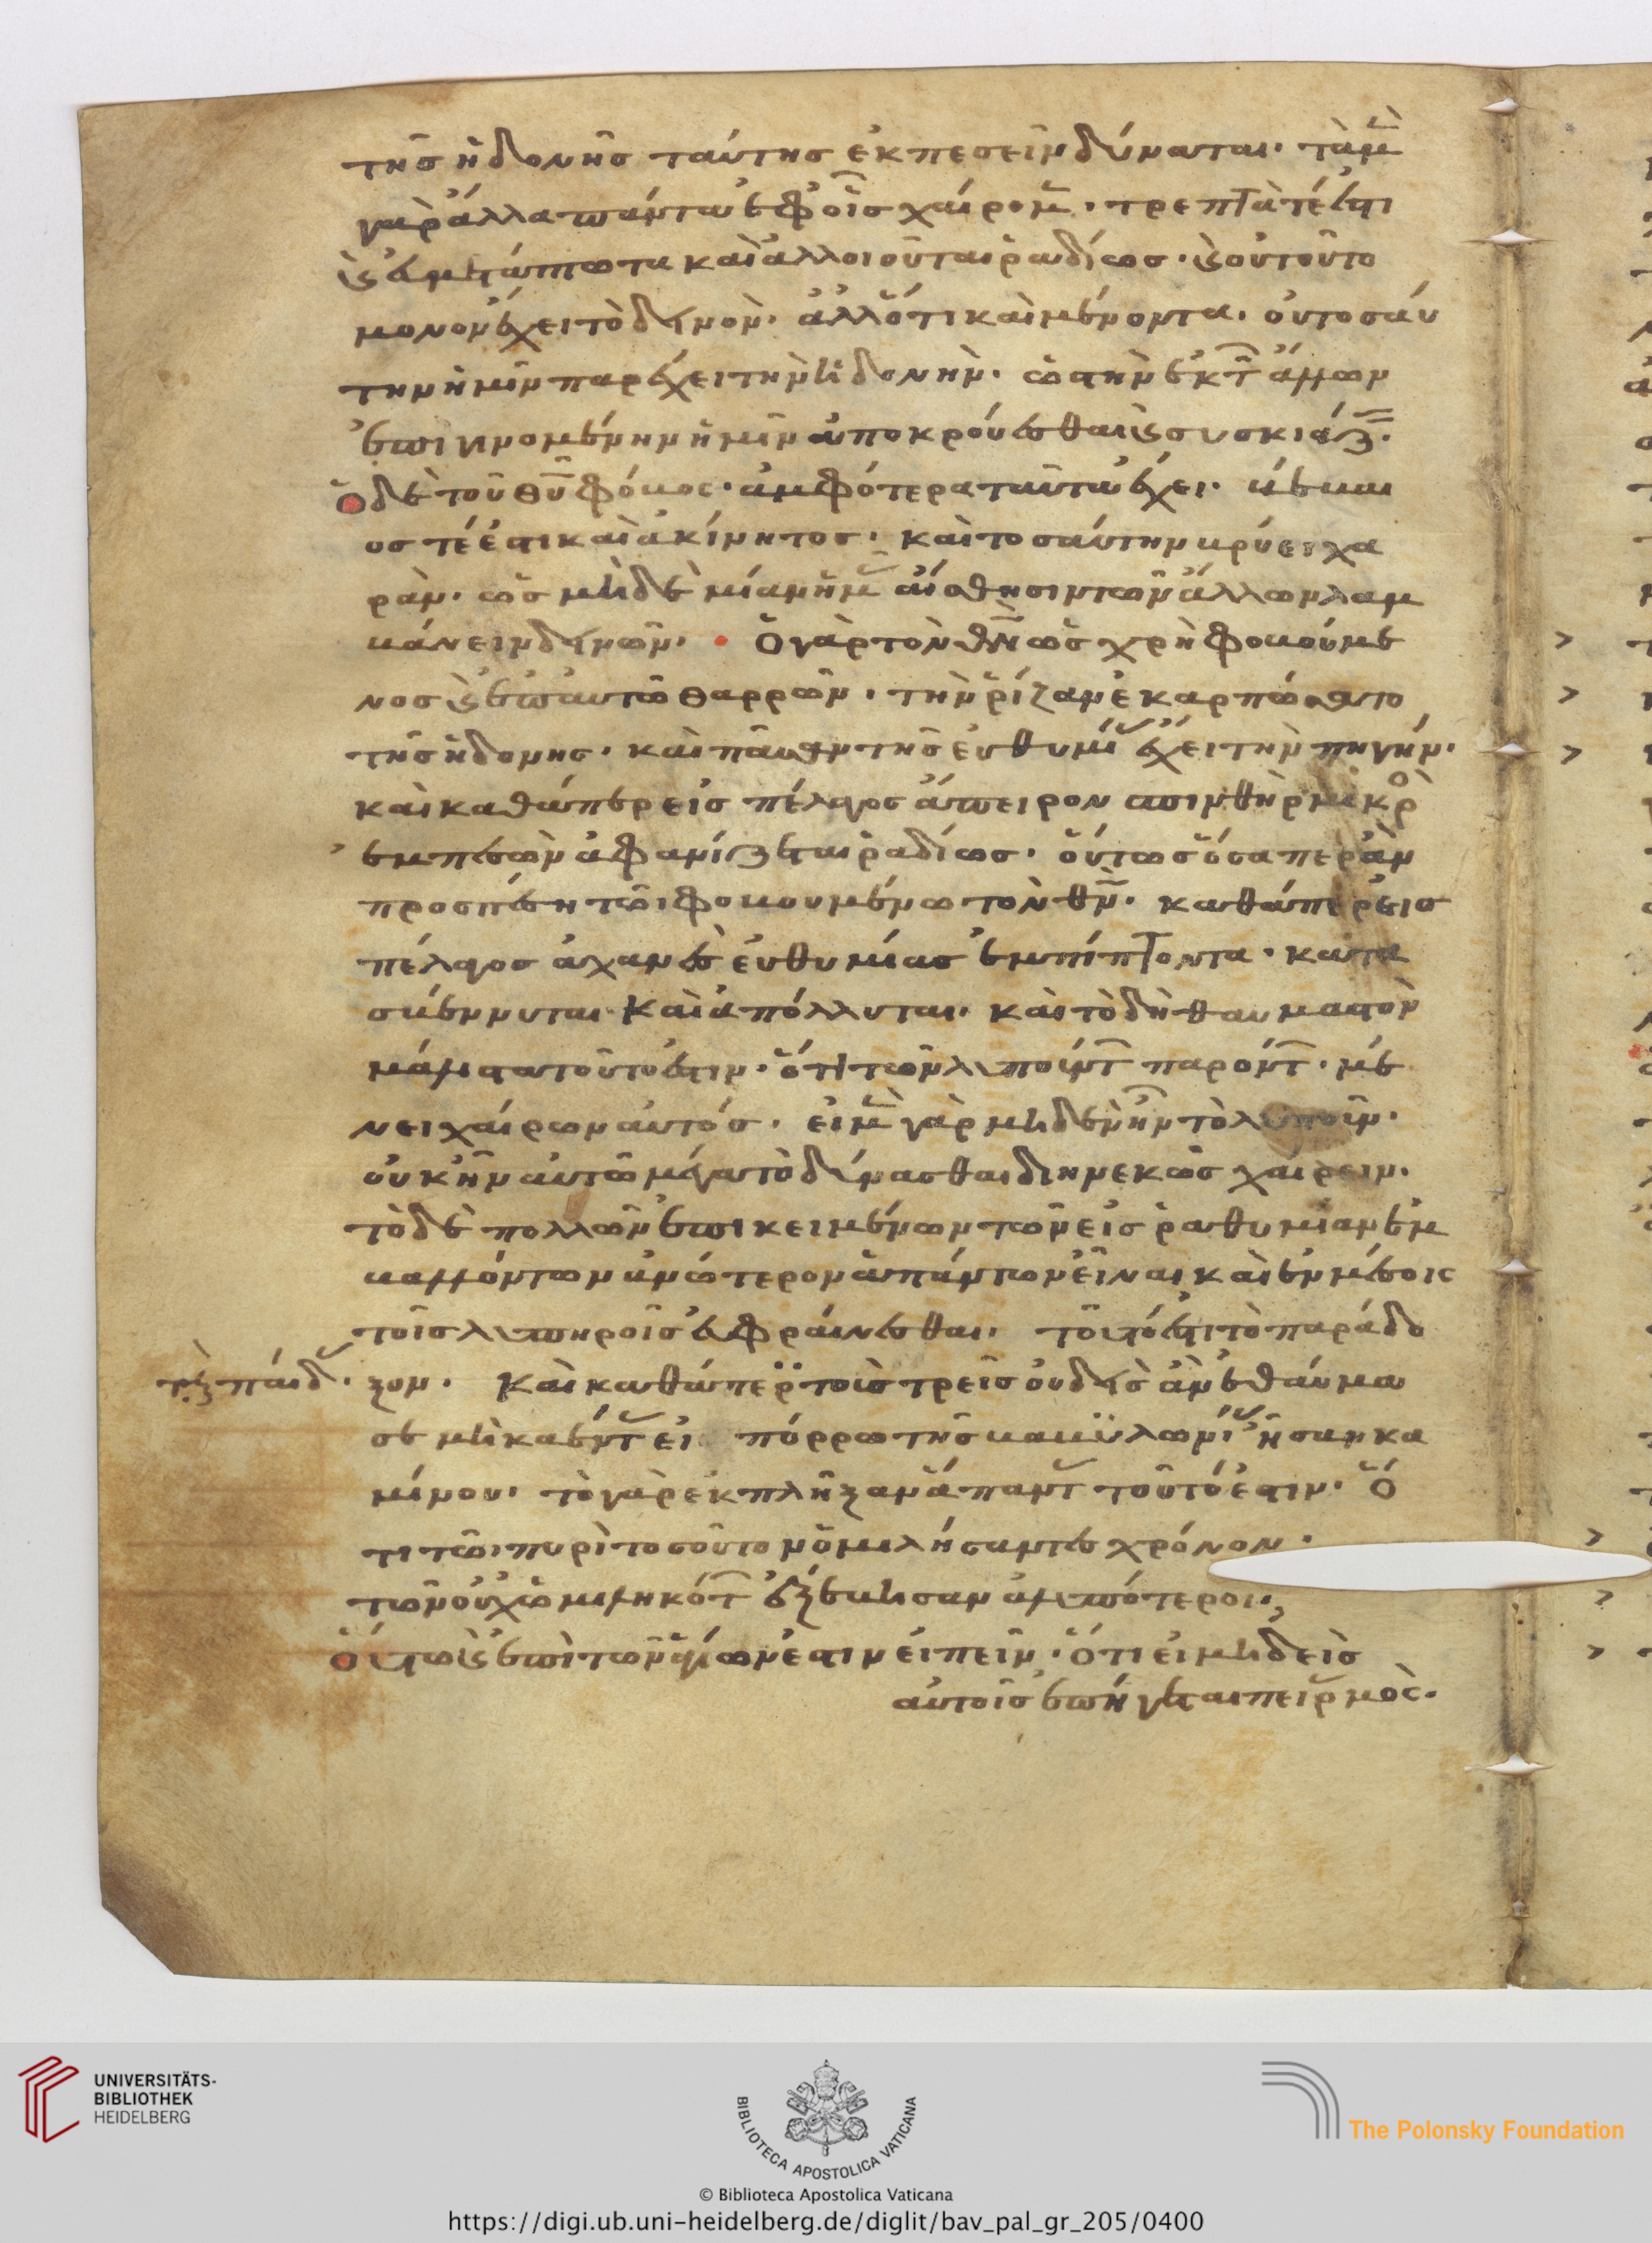 τῆς ἡδονῆς ταύτης ἐκπεσεῖν δύναται· τὰ μ̅ὲ
γὰρ ἄλλα πάντα ἐφ οἷς χαίρομ̅· τρεπτὰ τέ ἐστι
κ εὐμετάπτωτα καὶ ἀλλοιοῦται ῥαδίως· κ οὐ τοῦτο
μόνον ἔχει τὸ δεινὸν· ἀλλ ὅτι καὶ μένοντα· οὐ τοσαύ
την ἡμῖν παρέχει τὴν ἡδονὴν· ὡς τὴν ἐκ τ̅ ἄλλων
ἐπιγινομένην ἡμῖν ἀποκρούεσθαι κ συσκιάζ·
Ὁ δὲ τοῦ θυ̅ φόβος· ἀμφότερα ταῦτα ἔχει· βέβαι
ος τέ ἐστι καὶ ἀκίνητος· καὶ τοσαύτην βρύει χα
ρὰν· ὡς μηδὲ μίαν ἡμ̅ αἴσθησιν τῶν ἄλλων λαμ
βάνειν δεινῶν· Ὁ γὰρ τὸν θν̅ ὡς χρὴ φοβούμε
νος κ ἐπ αὐτῶ θαρρῶν· τὴν ῥίζαν ἐκαρπώσατο
τῆς ἡδονῆς· καὶ πᾶσαν τῆς εὐθυμί ἔχει τὴν πηγήν·
καὶ καθάπερ εἰς πέλαγος ἄπειρον σπινθὴρ μικρὸ
ἐμπεσὼν ἀφανίζεται ῥαδίως· οὕτως ὅσαπερ ἂν
προσπέση τῶι φοβουμένω τὸν θν̅· καθάπερ εἰς
πέλαγος ἀχανὲς εὐθυμίας ἐμπίπτοντα· κατα
σβέννυται καὶ ἀπόλλυται· καὶ τὸ δὴ θαυμαστὸν
μάλιστα τοῦτό ἐστιν· ὅτι τῶν λυπούντ παρόντ· μέ
νει χαίρων αὐτός· εἰ μ̅ὲ γὰρ μηδὲν ἦν τὸ λυποῦν·
οὐκ ἦν αὐτῶ μέγα τὸ δύνασθαι διηνεκῶς χαίρειν·
τὸ δὲ πολλῶν ἐπικειμένων τῶν εἰς ῥαθυμίαν ἐμ
βαλλόντων ἀνώτερον ἁπάντων εἶναι καὶ ἐν μέσοις
τοῖς λυπηροῖς εὐφραίνεσθαι· τοῦτό ἐστι τὸ παράδο
ξον· Καὶ καθάπερ τοὺς τρεῖς οὐδεὶς ἂν ἐθαύμα
σε μὴ καέντ εἰ πόρρω τῆς βαβυλωνί ἦσαν κα
μίνου· τὸ γὰρ ἐκπλῆξαν ἅπαντ τοῦτό ἐστιν· ὅ
τι τῶι πυρὶ τοσοῦτον ὁμιλήσαντες χρόνον·
τῶν οὐχ ὡμιληκότ ἐξέβησαν ἀλυπότεροι·
Οὕτω κ ἐπὶ τῶν ἁγίων ἐστιν εἰπεῖν· ὅτι εἰ μηδεὶς
αὐτοῖς ἐπήγεται πειρμὸς·
τρ̀ παίδ·
UNIVERSITÄTS-
BIBLIOTHEK
HEIDELBERG
BIBLIOTECA APOSTOLICA VATICANA
The Polonsky Foundation
© Biblioteca Apostolica Vaticana
https://digi.ub.uni-heidelberg.de/diglit/bav_pal_gr_205/0400